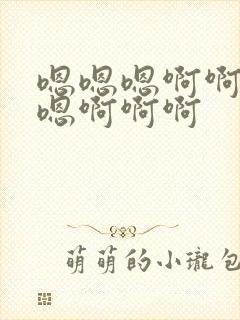 嗯嗯嗯啊啊
嗯啊啊啊
萌萌的小瓏包